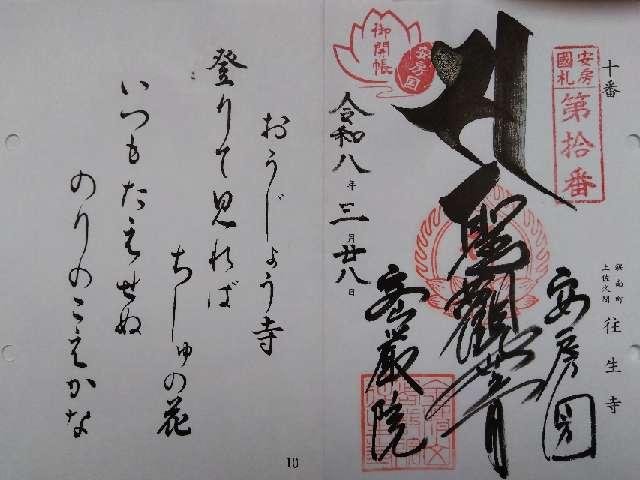 十番
安房
國札
第拾番
鋸南町
土佐久間
往生寺
安房国
聖観世音
密厳院
御開帳
安房国
令和八年三月廿八日
おうじょう寺
登りて見れば
ちしゅの花
いつもたえせぬ
のりのこえかな
10